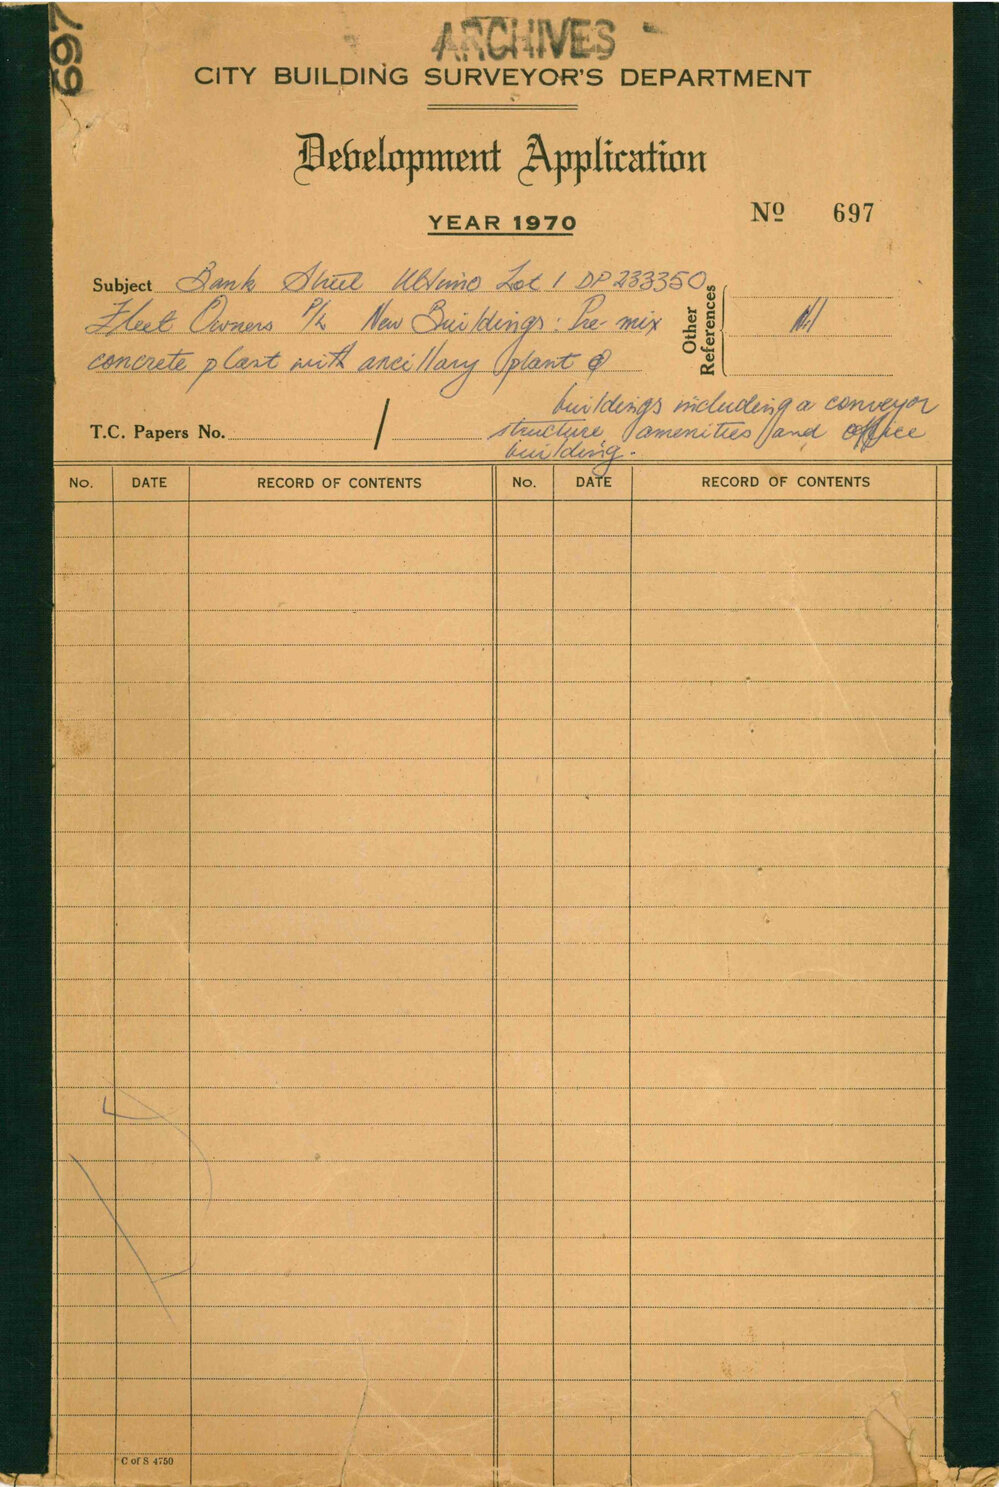 697
ARCHIVES
CITY BUILDING SURVEYOR'S DEPARTMENT
Development Application
YEAR 1970
No 697
Subject Bank Street Ultimo Lot 1 DP 233350
Fleet Owners P/L New Buildings: Pre-mix
concrete plant with ancillary plant &
buildings including a conveyor
structure amenities and office
building.
Other
References
Nil
T.C. Papers No. /
No. DATE RECORD OF CONTENTS No. DATE RECORD OF CONTENTS
C of S 4750